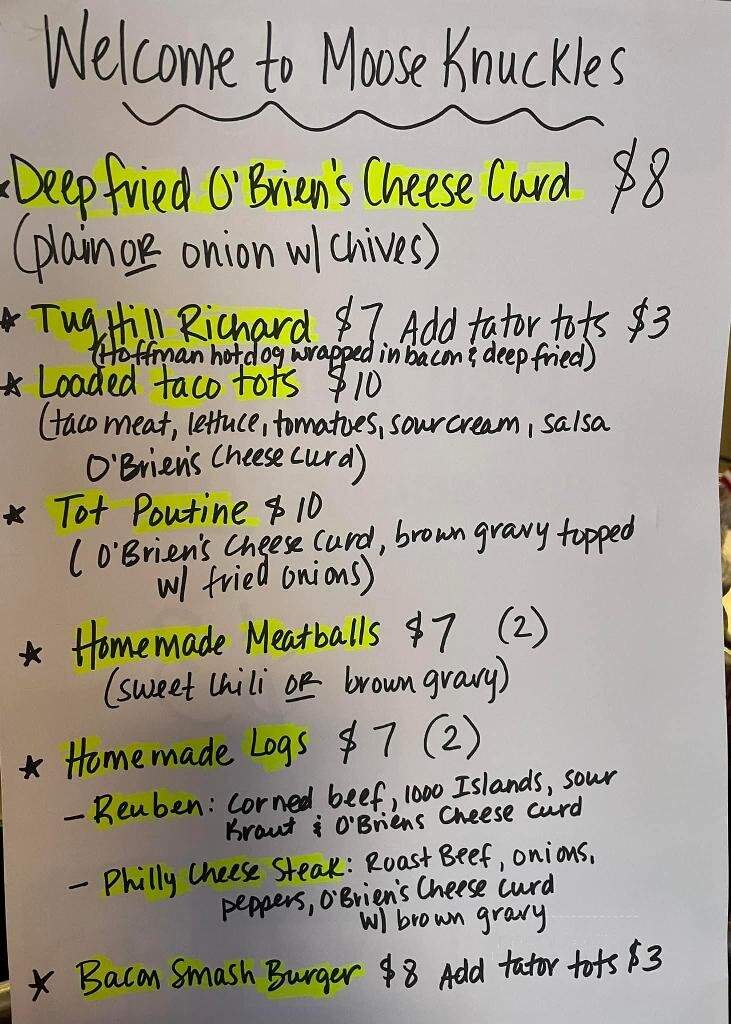 Welcome to Moose Knuckles
* Deep fried O'Brien's Cheese Curd $8
(plain OR onion w/ chives)
* Tug Hill Richard $7 Add tator tots $3
(Hoffman hotdog wrapped in bacon & deep fried)
* Loaded taco tots $10
(taco meat, lettuce, tomatoes, sour cream, salsa
O'Brien's Cheese curd)
* Tot Poutine $10
(O'Brien's Cheese Curd, brown gravy topped
w/ fried onions)
* Homemade Meatballs $7 (2)
(sweet chili OR brown gravy)
* Homemade Logs $7 (2)
- Reuben: Corned beef, 1000 Islands, sour
Kraut & O'Briens Cheese curd
- Philly Cheese Steak: Roast Beef, onions,
peppers, O'Brien's Cheese Curd
w/ brown gravy
* Bacon Smash Burger $8 Add tator tots $3